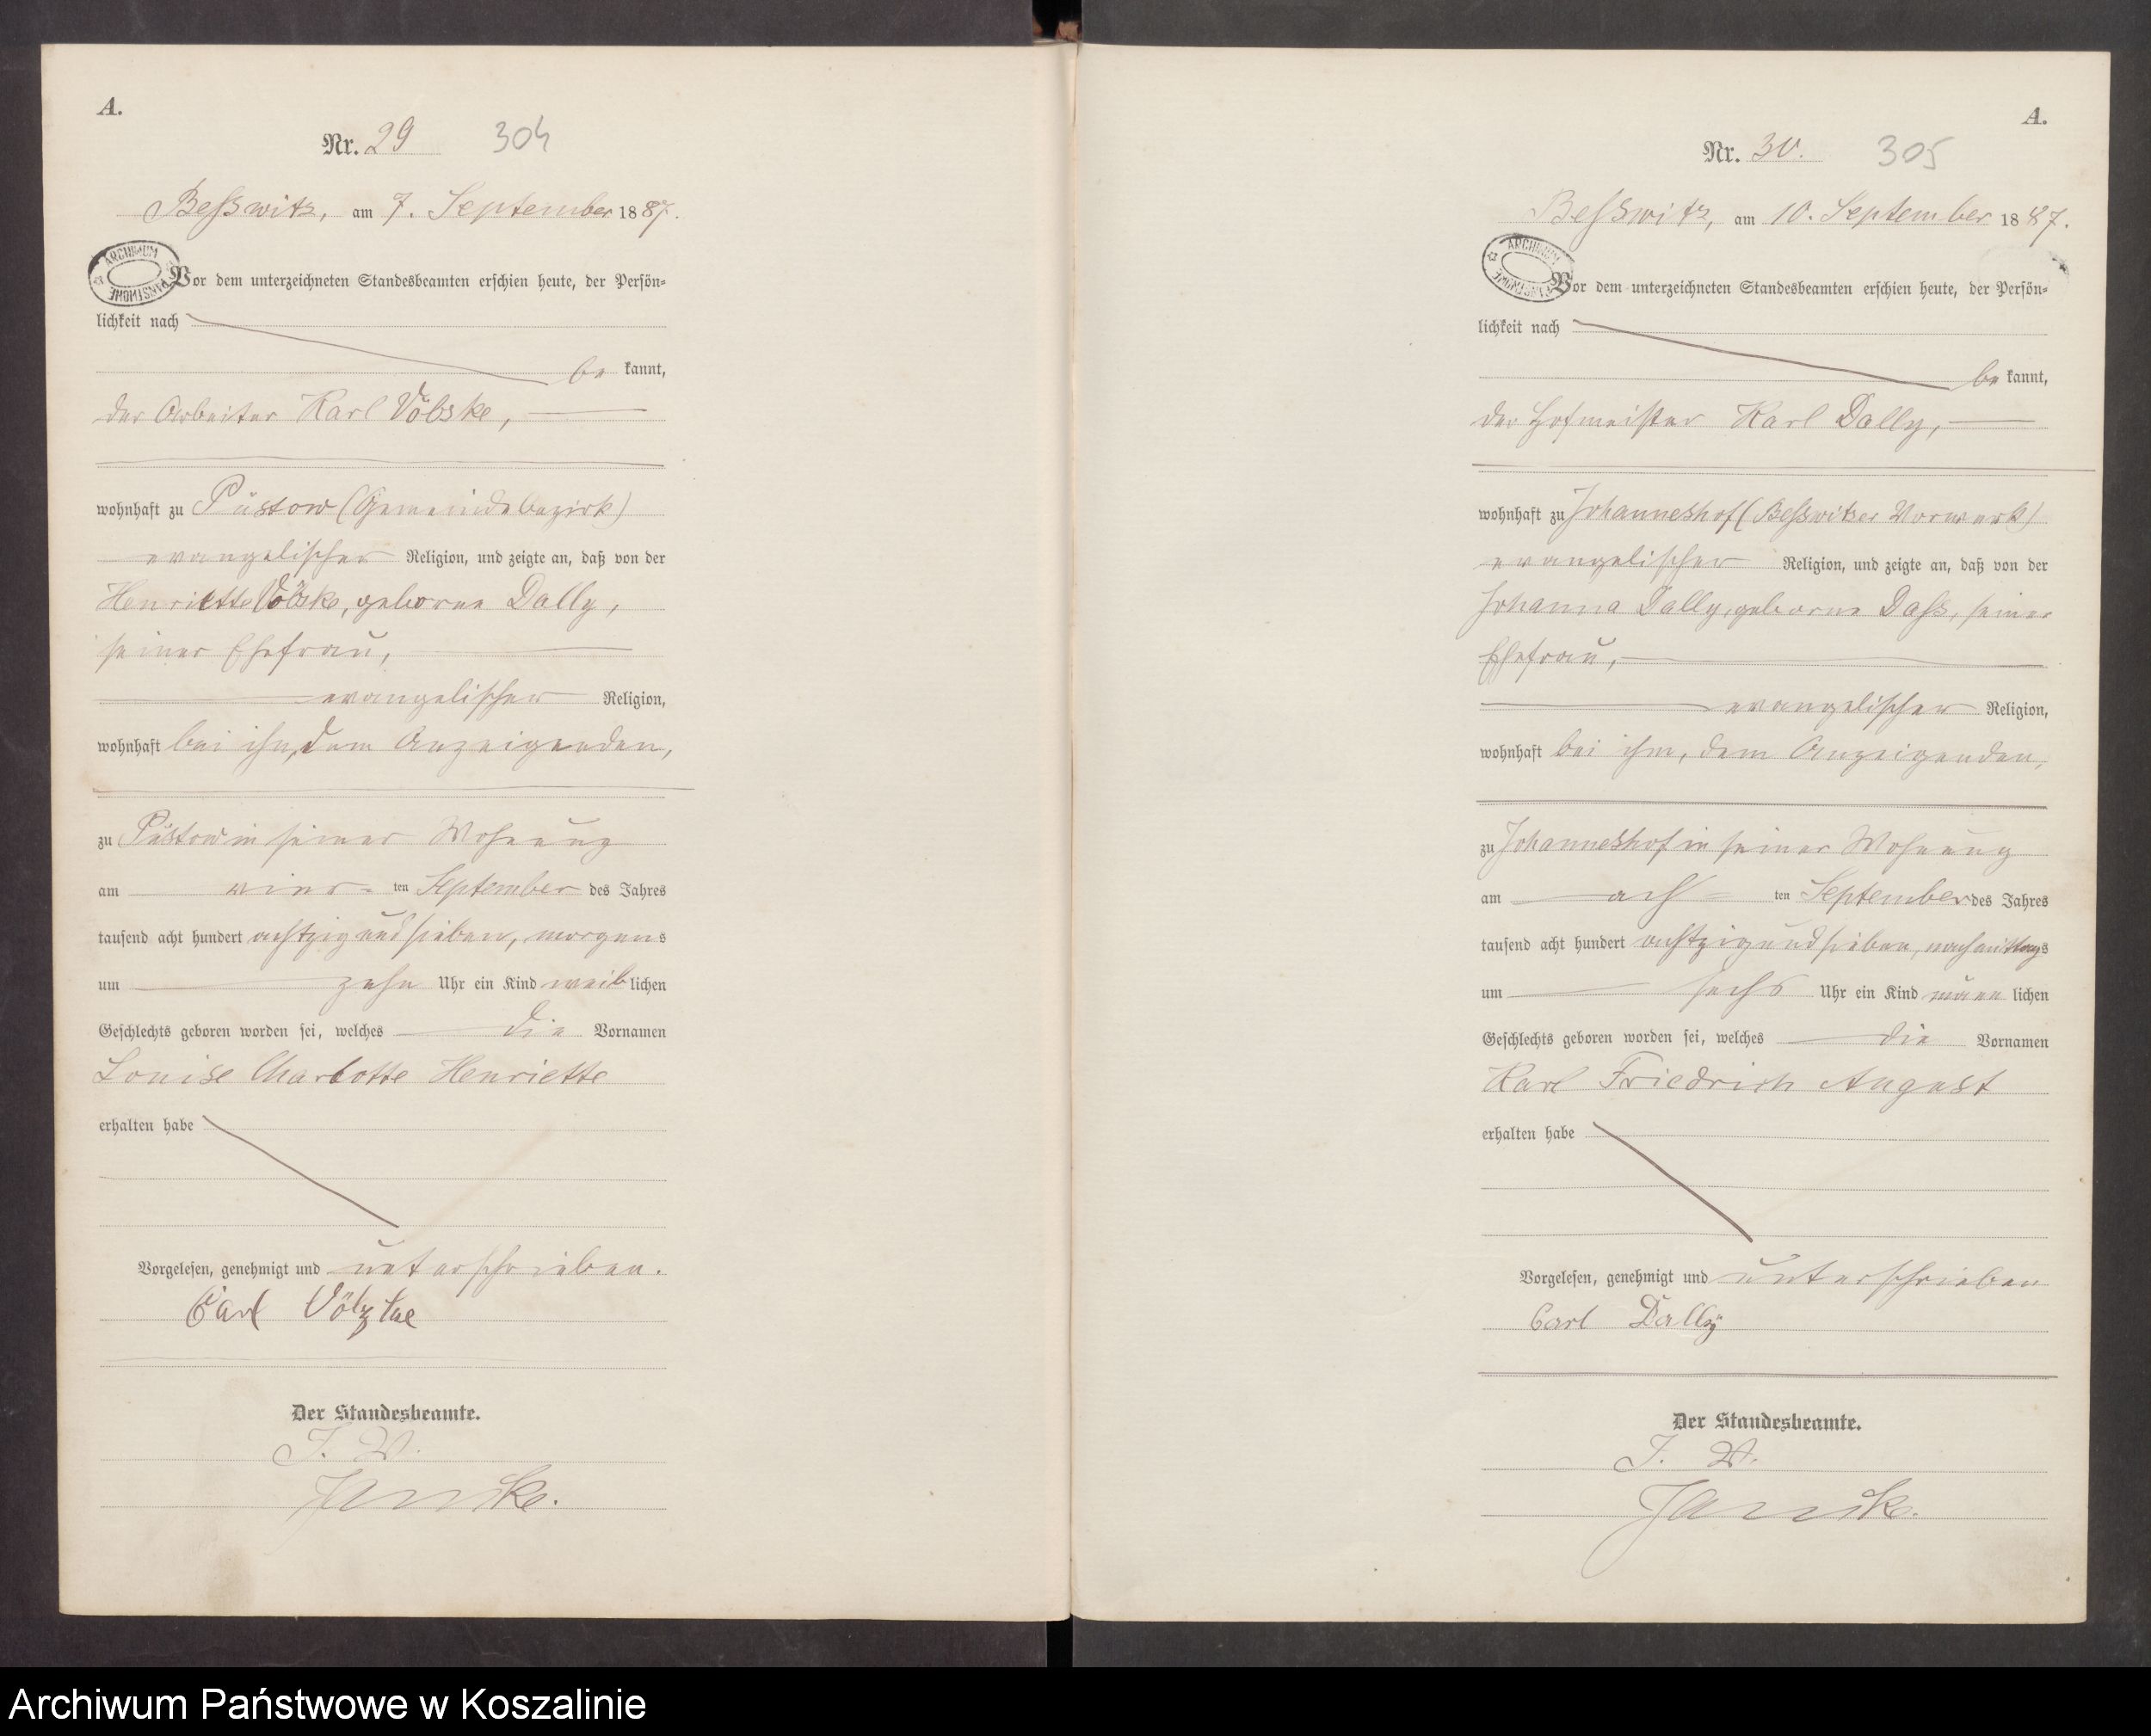 A.
Nr. 29 304
Besswitz, am 7. September 1887.
ARCHIWUM PAŃSTWOWE
Vor dem unterzeichneten Standesbeamten erschien heute, der Persön-
lichkeit nach
be kannt,
der Arbeiter Karl Völzke,
wohnhaft zu Püstow (Gemeindebezirk)
evangelischer Religion, und zeigte an, daß von der
Henriette Völzke, geborne Dally,
seiner Ehefrau,
evangelischer Religion,
wohnhaft bei ihm, dem Anzeigenden,
zu Püstow in seiner Wohnung
am vier- ten September des Jahres
tausend acht hundert achtzig und sieben, morgens
um zehn Uhr ein Kind weib lichen
Geschlechts geboren worden sei, welches die Vornamen
Louise Charlotte Henriette
erhalten habe
Vorgelesen, genehmigt und unterschrieben.
Carl Völzke
Der Standesbeamte.
J. V.
A.
Nr. 30. 305
Besswitz, am 10. September 1887.
ARCHIWUM PAŃSTWOWE
Vor dem unterzeichneten Standesbeamten erschien heute, der Persön-
lichkeit nach
be kannt,
der Hofmeister Karl Dally,
wohnhaft zu Johanneshof (Besswitzer Vorwerk)
evangelischer Religion, und zeigte an, daß von der
Johanna Dally, geborne Dass, seiner
Ehefrau,
evangelischer Religion,
wohnhaft bei ihm, dem Anzeigenden,
zu Johanneshof in seiner Wohnung
am ach- ten September des Jahres
tausend acht hundert achtzig und sieben, nachmittags
um sechs Uhr ein Kind männ lichen
Geschlechts geboren worden sei, welches die Vornamen
Karl Friedrich August
erhalten habe
Vorgelesen, genehmigt und unterschrieben
Carl Dally
Der Standesbeamte.
J. V.
Archiwum Państwowe w Koszalinie